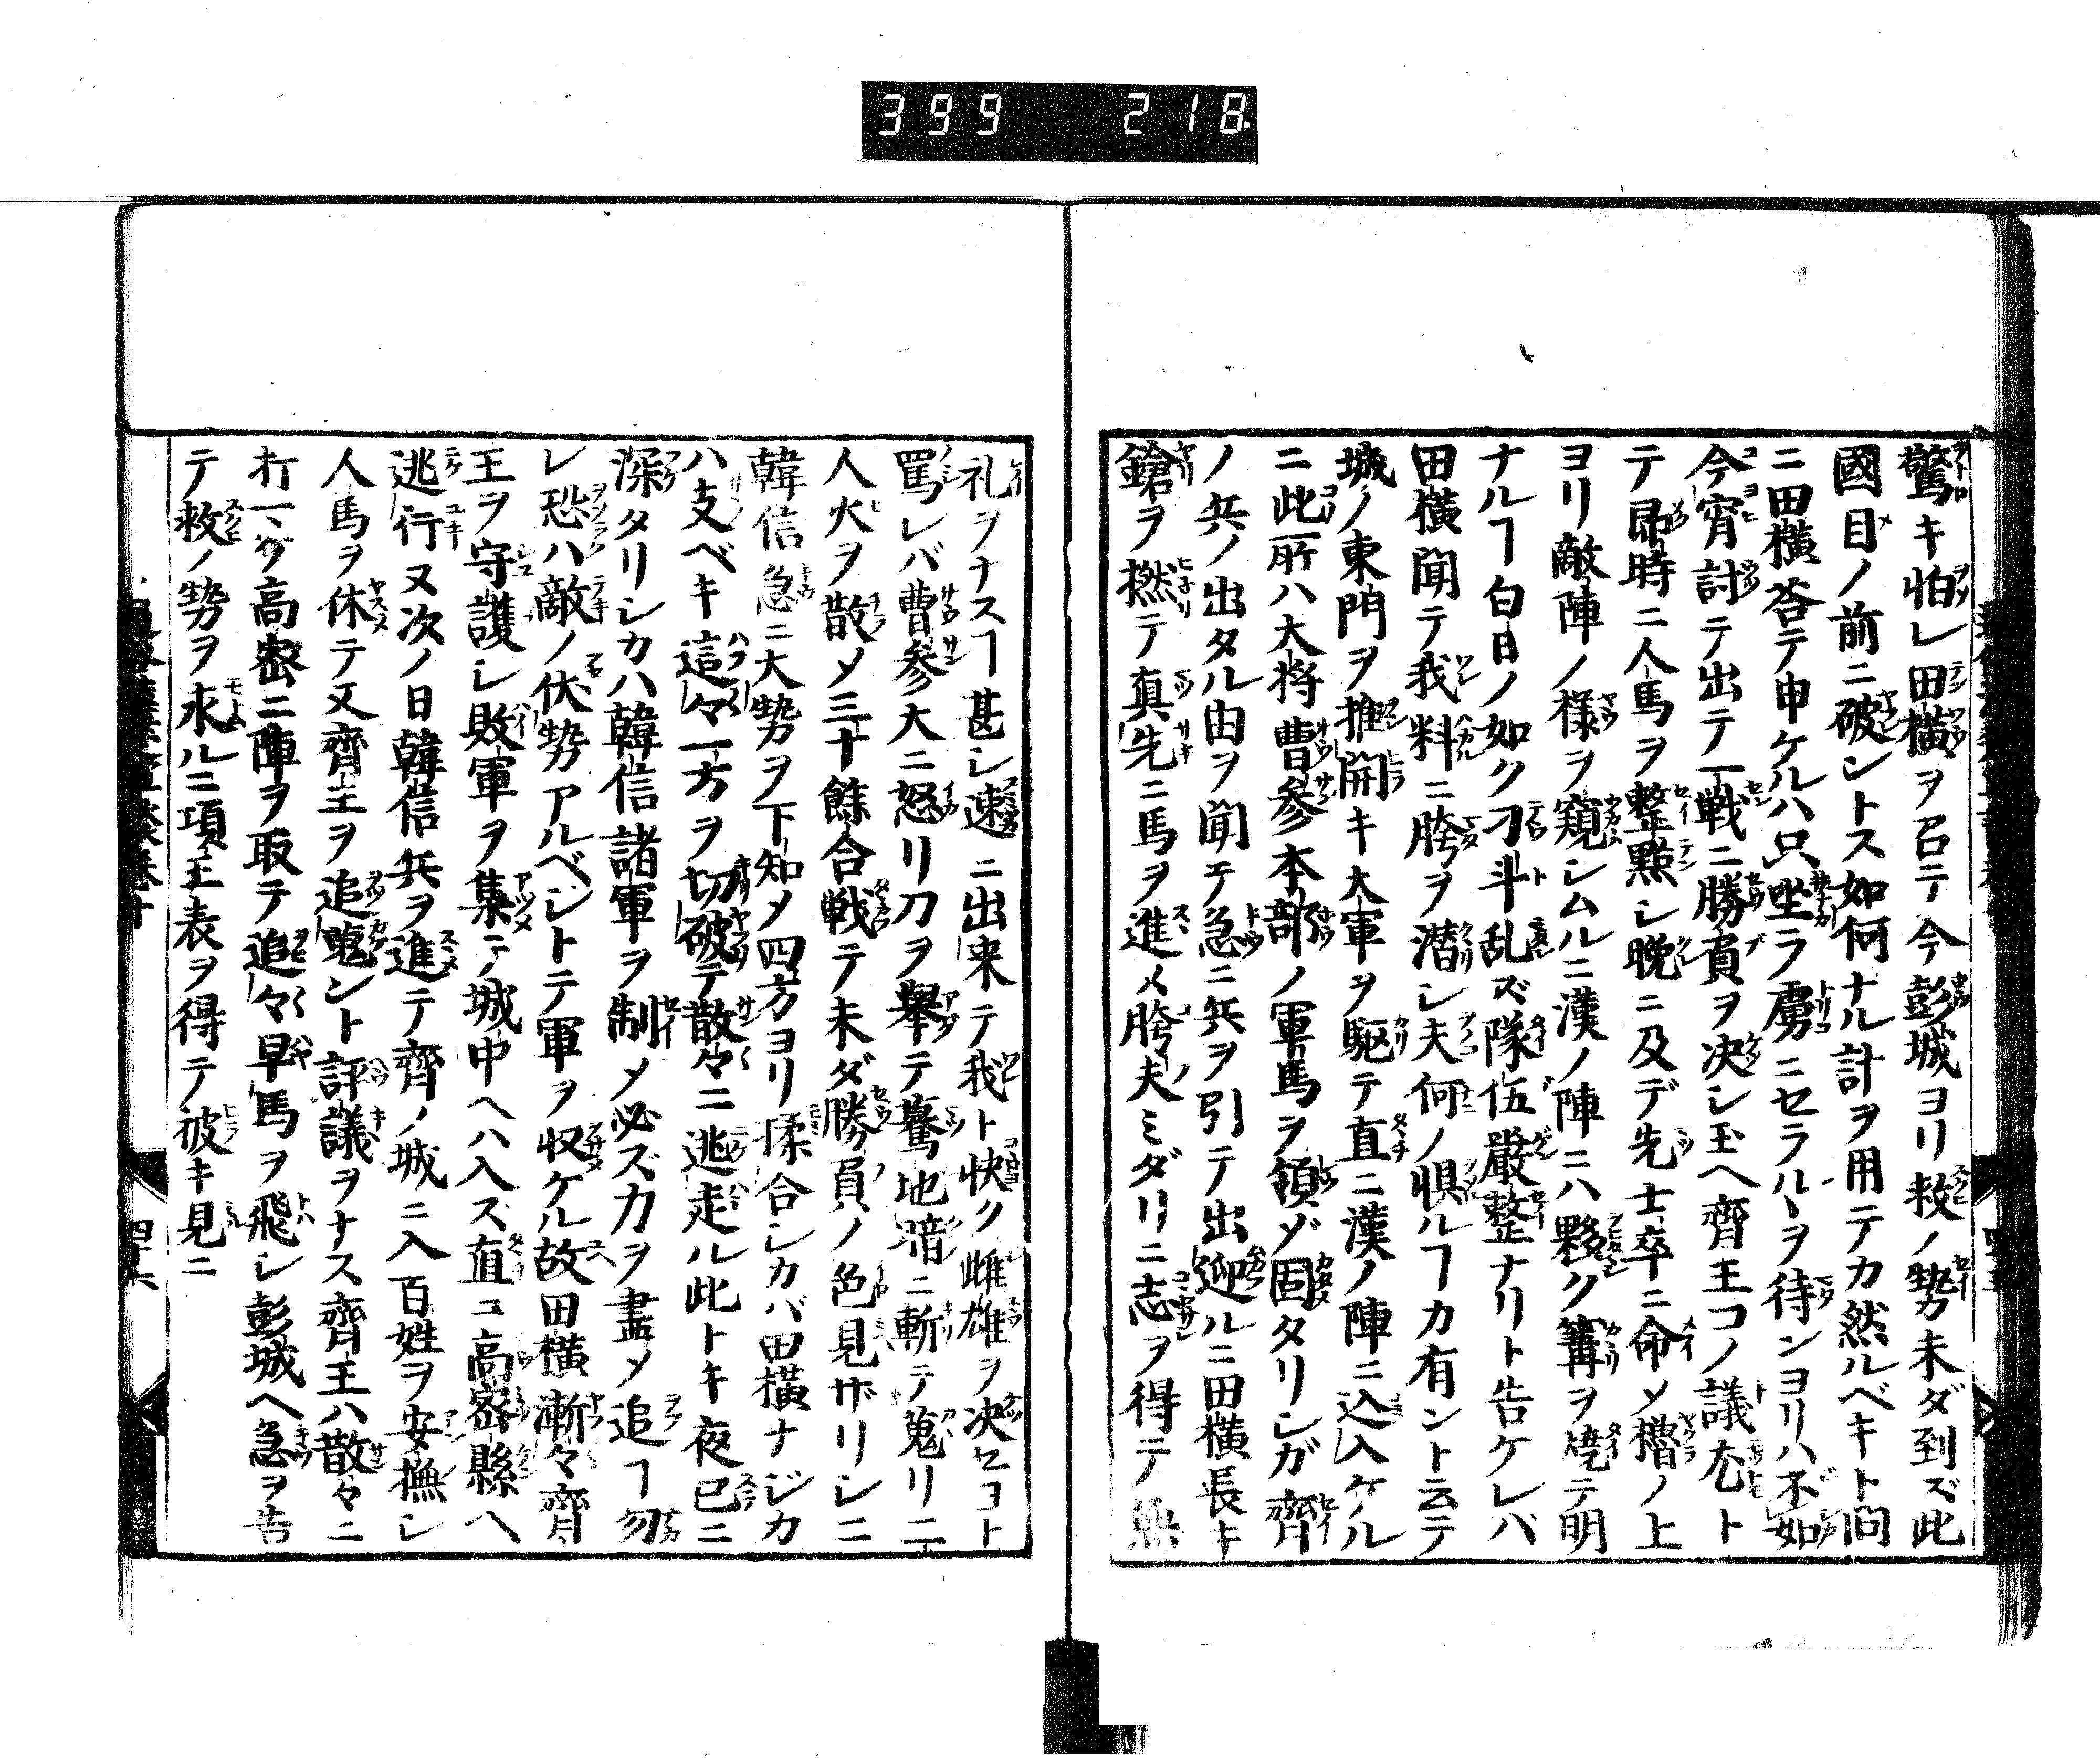 399 218
驚キ怕レ田横ヲ召テ今彭城ヨリ救ノ勢未ダ到ズ此
國目ノ前ニ破ントス如何ナル計ヲ用テカ然ルベキト問
ニ田横答テ申ケルハ只坐ラ虜ニセラルヽヲ待ンヨリハ不如
今宵討テ出テ一戦ニ勝負ヲ决シ玉ヘ齊王コノ議尤ト
テ即時ニ人馬ヲ整點シ晩ニ及デ先士卒ニ命メ櫓ノ上
ヨリ敵陣ノ様ヲ窺シムルニ漢ノ陣ニハ夥ク篝ヲ焼テ明
ナルヿ白日ノ如ク刁斗乱ズ隊伍嚴整ナリト告ケレバ
田横聞テ我料ニ胯ヲ潜シ夫何ノ惧ルヿカ有ント云テ
城ノ東門ヲ推開キ大軍ヲ駆テ直ニ漢ノ陣ニ込入ケル
ニ此所ハ大将曹参本部ノ軍馬ヲ領ゾ固タリシガ齊
ノ兵ノ出タル由ヲ聞テ急ニ兵ヲ引テ出迎ルニ田横長キ
鎗ヲ撚テ真先ニ馬ヲ進メ胯夫ミダリニ志ヲ得テ無
礼ヲナスヿ甚シ速ニ出来テ我ト快ク雌雄ヲ决セコト
罵レバ曹参大ニ怒リ刀ヲ舉テ驀地暗ニ斬テ蒐リ二
人火ヲ散メ三十餘合戦テ未ダ勝負ノ色見ザリシニ
韓信急ニ大勢ヲ下知メ四方ヨリ揉合シカバ田横ナジカ
ハ支ベキ這々一方ヲ切破テ散々ニ逃走ル此トキ夜已ニ
深タリシカハ韓信諸軍ヲ制メ必ス力ヲ盡メ追ヿ勿
レ恐ハ敵ノ伏勢アルベシトテ軍ヲ収ケル故田横漸々齊
王ヲ守護シ敗軍ヲ集テ城中ヘハ入ス直ニ高密縣ヘ
逃行ヌ次ノ日韓信兵ヲ進テ齊ノ城ニ入百姓ヲ安撫シ
人馬ヲ休テ又齊王ヲ追蒐ント評議ヲナス齊王ハ散々ニ
打一ケ高密ニ陣ヲ取テ追々早馬ヲ飛シ彭城ヘ急ヲ告
テ救ノ勢ヲ求ルニ項王表ヲ得テ披キ見ニ